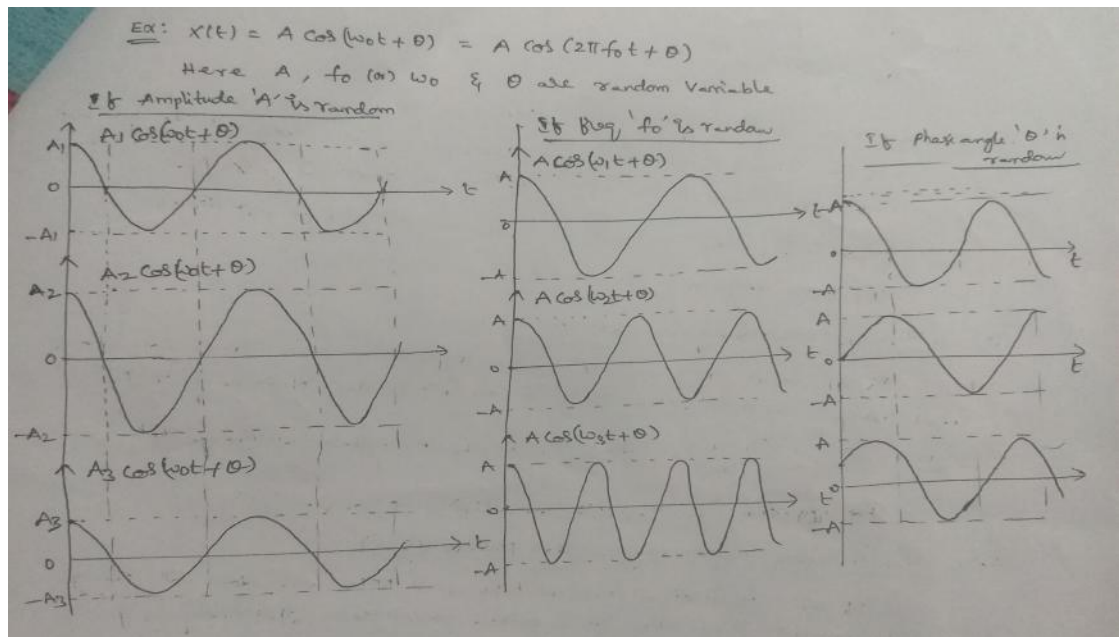 Ex: X(t) = A cos(ω0t + θ) = A cos(2πf0t + θ)
Here A, f0 (or) ω0 & θ are random Varriable
If Amplitude 'A' is random
A1 cos(ω0t + θ)
A1
0
-A1
t
A2 cos(ω0t + θ)
A2
0
-A2
A3 cos(ω0t + θ)
A3
0
-A3
t
If freq 'f0' is random
A cos(ω1t + θ)
A
0
-A
t
A cos(ω2t + θ)
A
0
-A
t
A cos(ω3t + θ)
A
0
-A
t
If Phase angle 'θ' is
random
A
0
-A
t
A
0
-A
t
A
0
-A